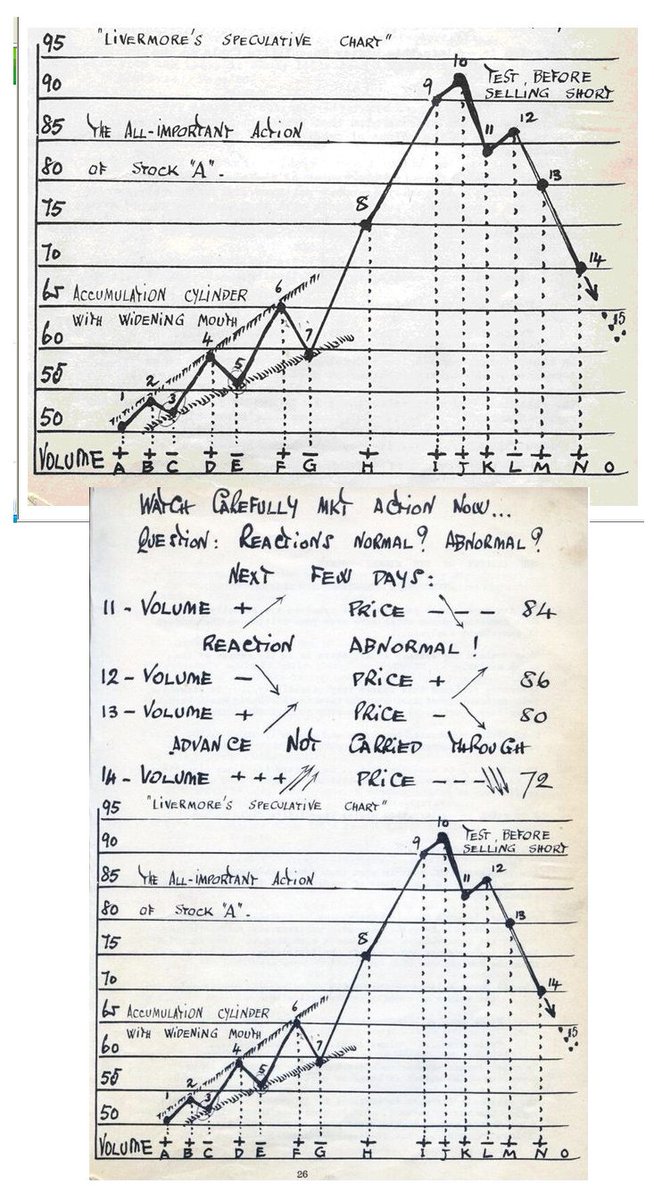 95 "LIVERMORE'S SPECULATIVE CHART"
10
90 9 TEST, BEFORE
SELLING SHORT
85 THE ALL-IMPORTANT ACTION 11 12
80 OF STOCK "A". 13
75 8
70 14
65 ACCUMULATION CYLINDER 6
WITH WIDENING MOUTH 15
60 4 7
55 5
1 2 3
50
VOLUME + + - + - + - + + + + - + +
A B C D E F G H I J K L M N O
WATCH CAREFULLY MKT ACTION NOW...
QUESTION: REACTIONS NORMAL? ABNORMAL?
NEXT FEW DAYS:
11 - VOLUME + PRICE - - - 84
REACTION ABNORMAL!
12 - VOLUME - PRICE + 86
13 - VOLUME + PRICE - 80
ADVANCE NOT CARRIED THROUGH
14 - VOLUME + + + PRICE - - - 72
95 "LIVERMORE'S SPECULATIVE CHART"
10
90 9 TEST, BEFORE
SELLING SHORT
85 THE ALL-IMPORTANT ACTION 11 12
80 OF STOCK "A". 13
75 8
70 14
65 ACCUMULATION CYLINDER 6
WITH WIDENING MOUTH 15
60 4 7
55 5
1 2 3
50
VOLUME + + - + - + - + + + + - + +
A B C D E F G H I J K L M N O
26